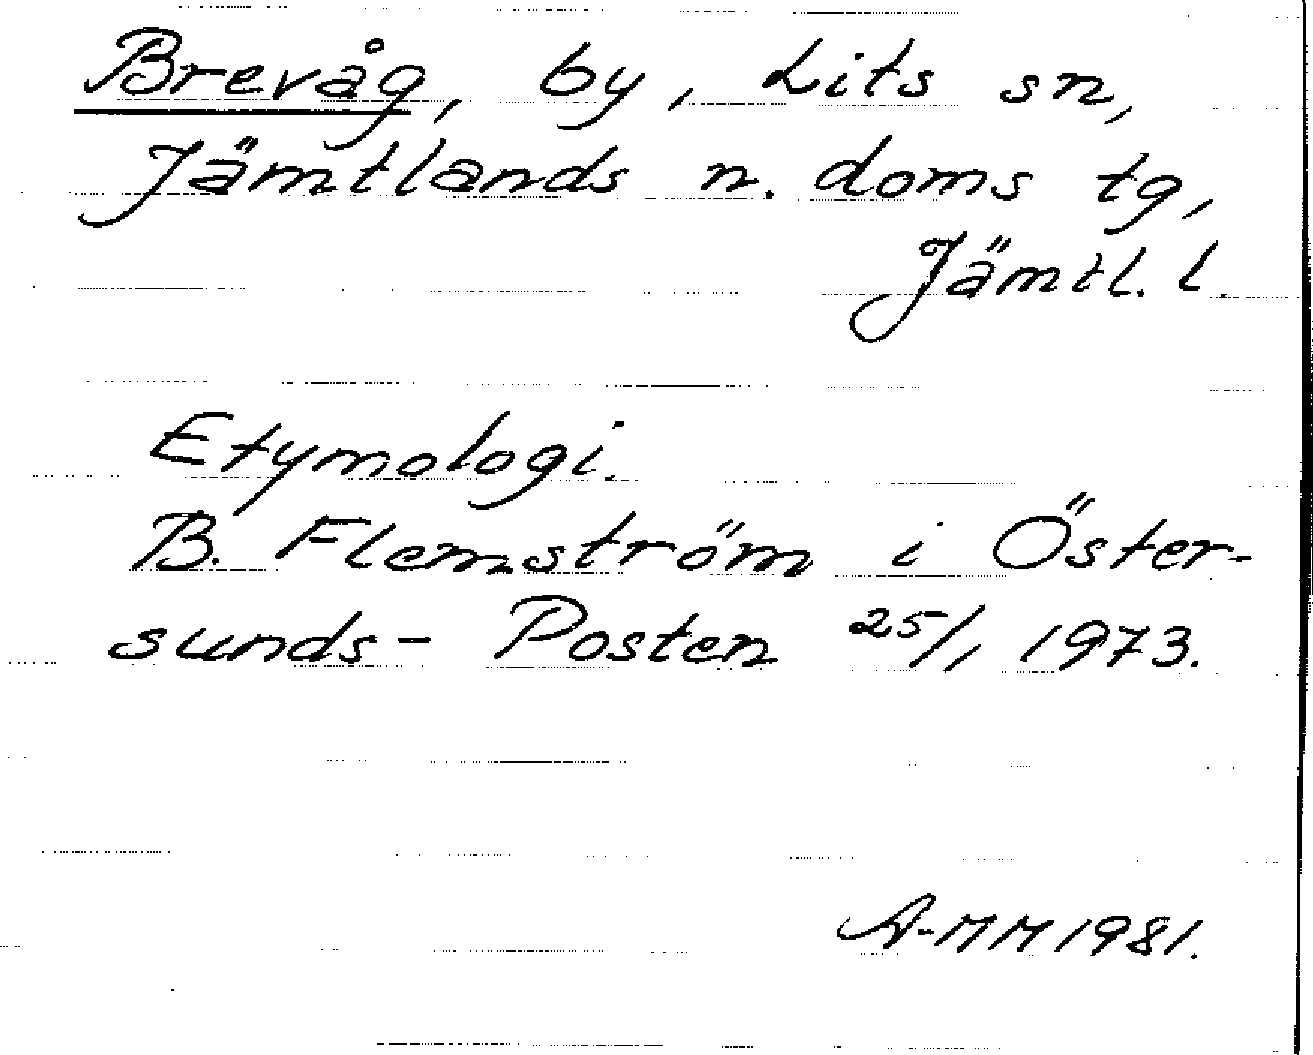 Brevåg, by, Lits sn,
Jämtlands n. doms tg,
Jämtl. l.
Etymologi.
B. Flemström i Öster-
sunds- Posten 25/1 1973.
A-MM 1981.